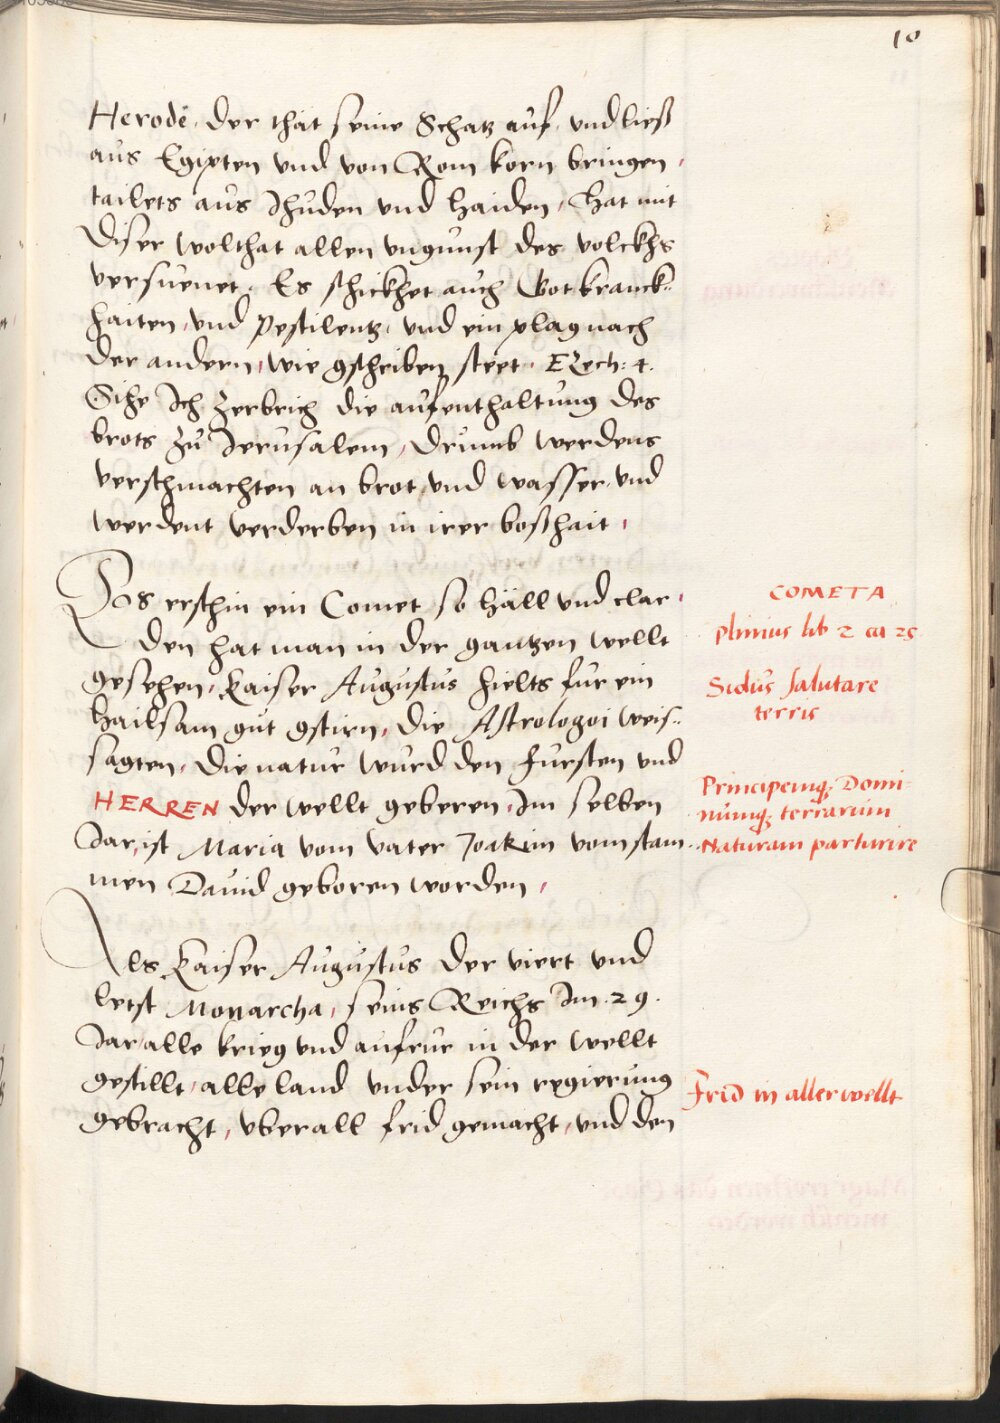 10
Herodē. der thät seine Schatz auf. und ließ
aus Egipten und von Rom korn bringen,
tailets aus Jhuden und haiden, hat mit
diser wolthat allen ungunst des volckhs
versuenet. Es schickhet auch Got kranck=
haiten, und Pestilentz, und ein plag nach
der andern, wie gschriben steet. EZech: 4.
Sihe Ich zerbrich die aufenthaltung des
brots zu Jerusalem, drumb werdens
verschmachten an brot, und wasser, und
werdent verderben in irer boßhait,
Dos erschin ein Comet so häll und clar,
den hat man in der gantzen wellt
gesehen, Kaiser Augustus hielts fur ein
hailsam gut gstirn, die Astrologoi weis=
sagten, die natur wurd den fursten und
HERREN der wellt geberen, Im selben
Jar, ist Maria vom vater Joakim vom stam=
men David geboren worden,
Als Kaiser Augustus der viert und
letst Monarcha, seins Reichs Im .29.
Jar, alle krieg und aufrur in der wellt
gestillt, alle land under sein regierung
gebracht, uberall frid gemacht, und den
COMETA
plinius lib 2 ca 25
Sidus salutare
terris
Principemq; Domi=
numq; terrarum
Naturam parturire
Frid in aller wellt